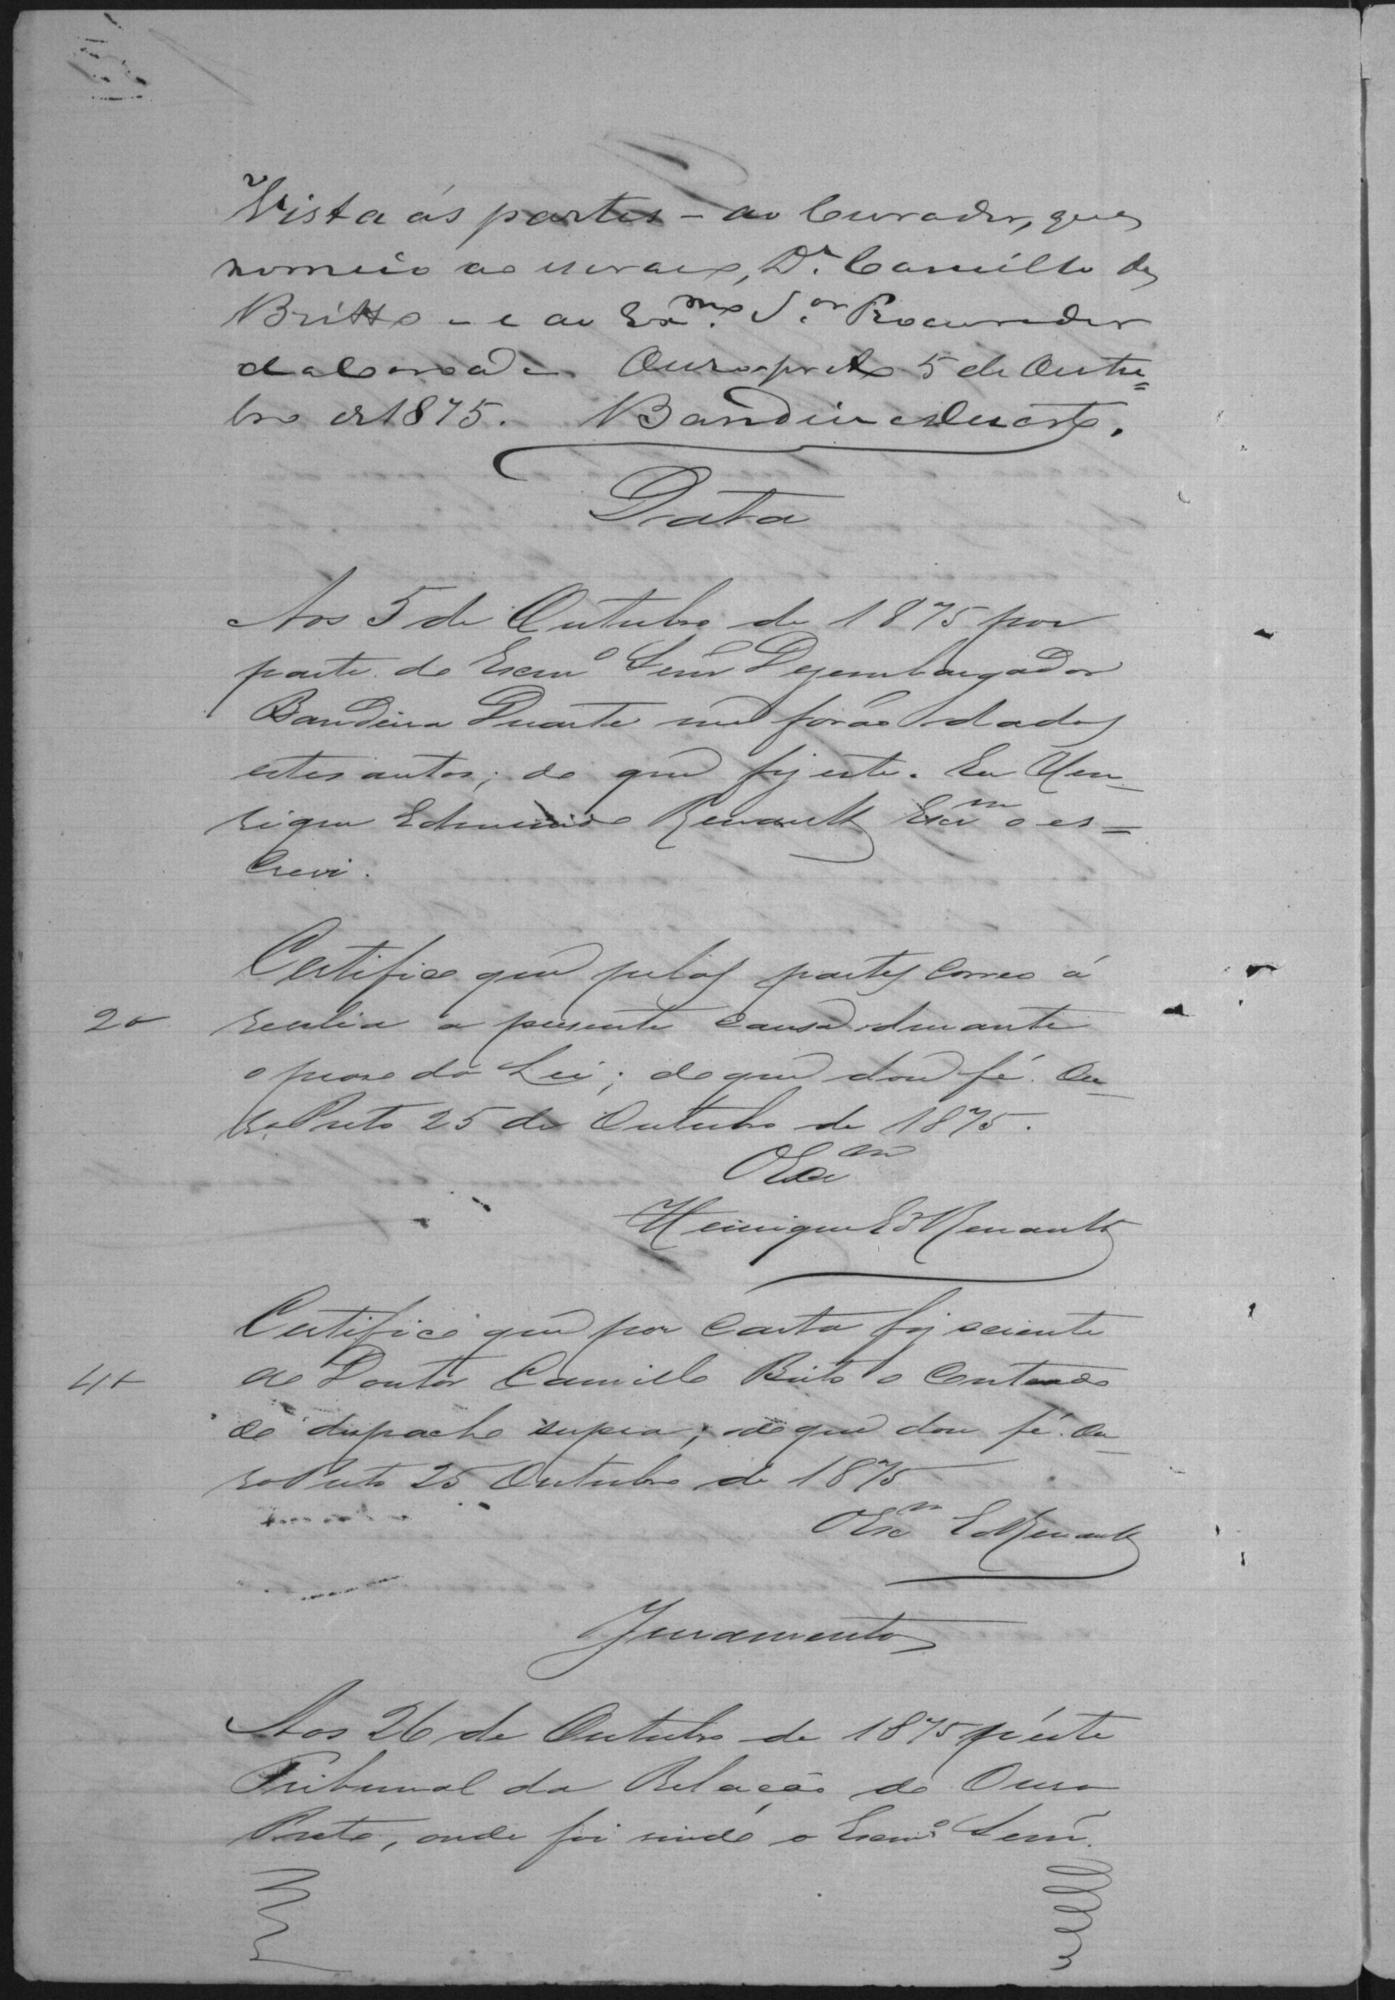 Vista ás partes - ao Curador, que
nomeio ao escravo, Dr. Camillo de
Britto - e ao Exmo. Sor. Procurador
da Coroa. Ouro preto 5 de Outu=
bro de 1875. Bandeira Duarte.
Data
Aos 5 de Outubro de 1875 por
parte do Exmo Senr Dezembargador
Bandeira Duarte me forão dados
estes autos; do que fiz este. Eu Hen-
rique Edmundo Renault Escm o es=
crevi.
Certifico que pelas partes correo á
20 revelia a presente causa durante
o praso da Lei; do que dou fé. Ou-
ro Preto 25 de Outubro de 1875.
O Escm
Henrique Ed Renault
Certifico que por carta fiz sciente
4 ao Doutor Camillo Brito o conteudo
do dispacho supra; do que dou fé. Ou-
ro Preto 25 Outubro de 1875
O Escm E d Renault
Juramento
Aos 26 de Outubro de 1875 n'este
Tribunal da Relação do Ouro
Preto, onde foi vindo o Exmo Senr.